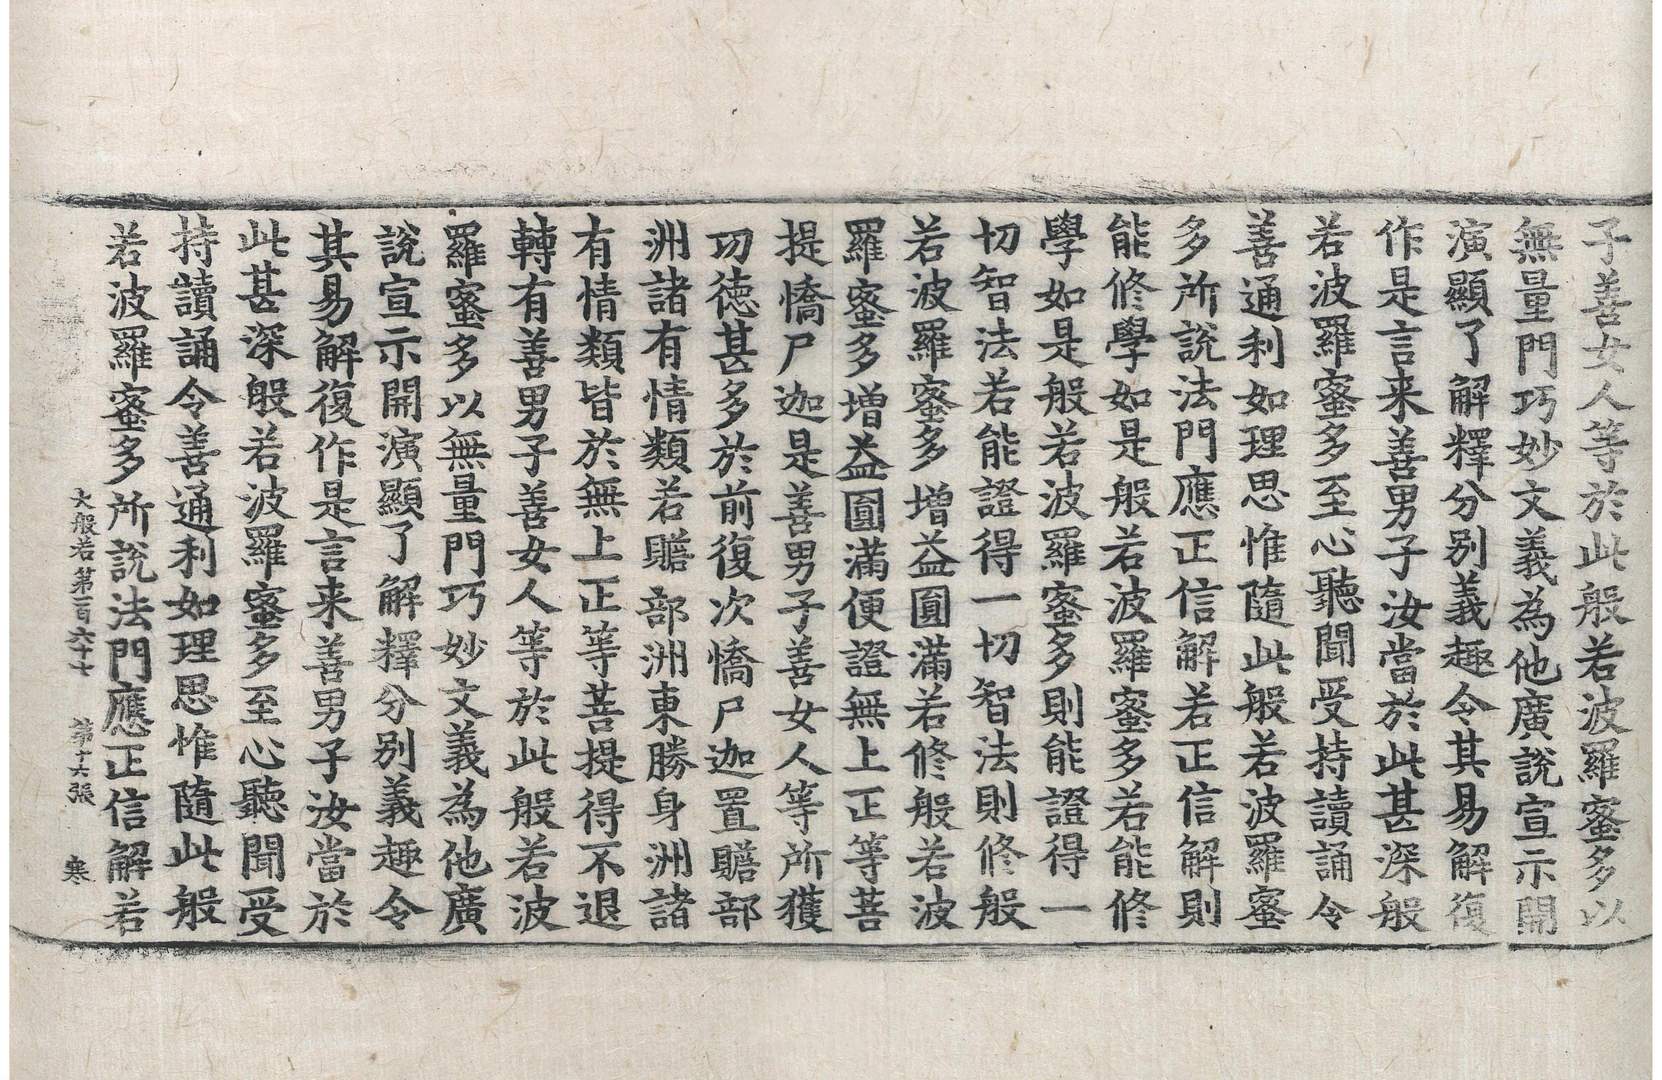 子善女人等於此般若波羅蜜多以
無量門巧妙文義為他廣說宣示開
演顯了解釋分別義趣令其易解復
作是言来善男子汝當於此甚深般
若波羅蜜多至心聽聞受持讀誦令
善通利如理思惟隨此般若波羅蜜
多所說法門應正信解若正信解則
能修學如是般若波羅蜜多若能修
學如是般若波羅蜜多則能證得一
切智法若能證得一切智法則修般
若波羅蜜多增益圓滿若修般若波
羅蜜多增益圓滿便證無上正等菩
提憍尸迦是善男子善女人等所獲
功德甚多於前復次憍尸迦置贍部
洲諸有情類若贍部洲東勝身洲諸
有情類皆於無上正等菩提得不退
轉有善男子善女人等於此般若波
羅蜜多以無量門巧妙文義為他廣
說宣示開演顯了解釋分別義趣令
其易解復作是言来善男子汝當於
此甚深般若波羅蜜多至心聽聞受
持讀誦令善通利如理思惟隨此般
若波羅蜜多所說法門應正信解若
大般若第一百六十七 第十六張 寒